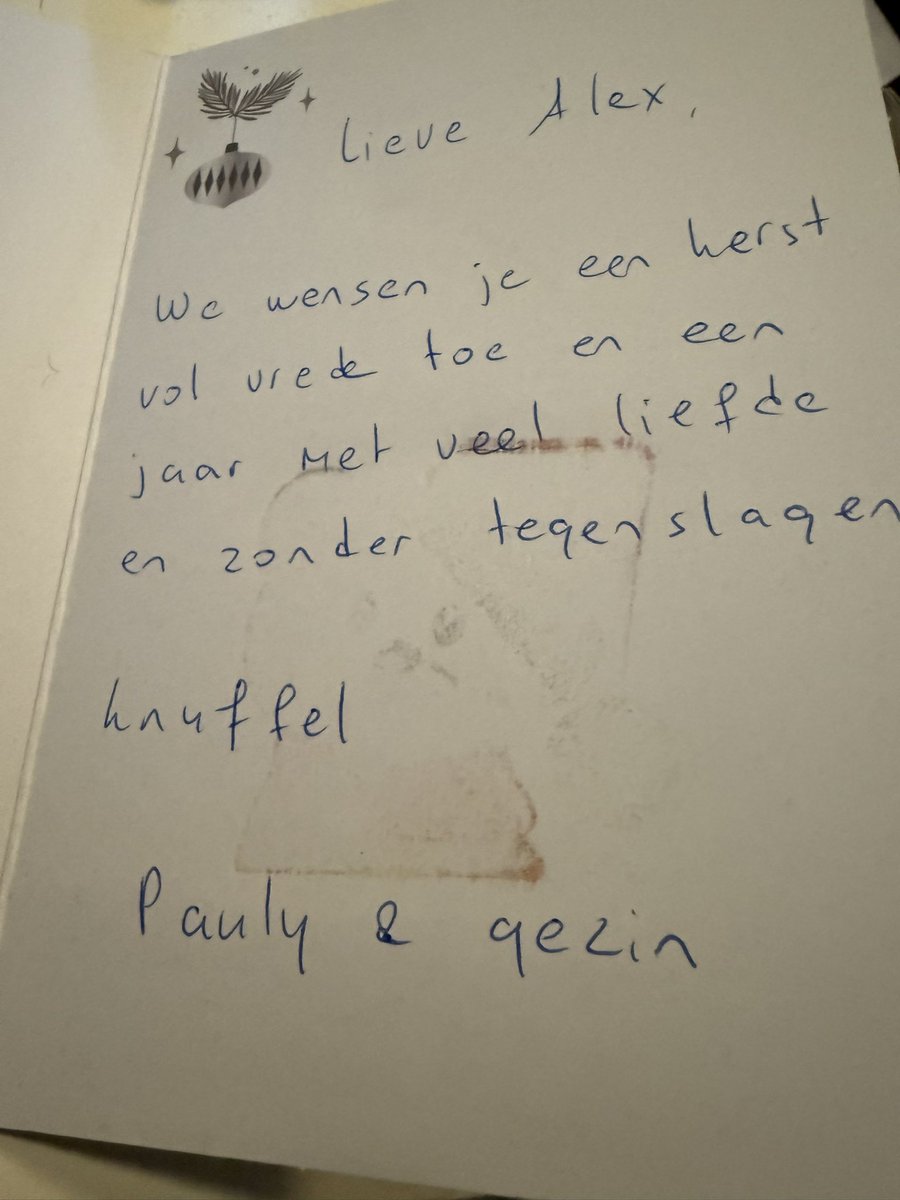 Lieve Alex,
We wensen je een kerst
vol vrede toe en een
jaar met veel liefde
en zonder tegenslagen
knuffel
Pauly & gezin